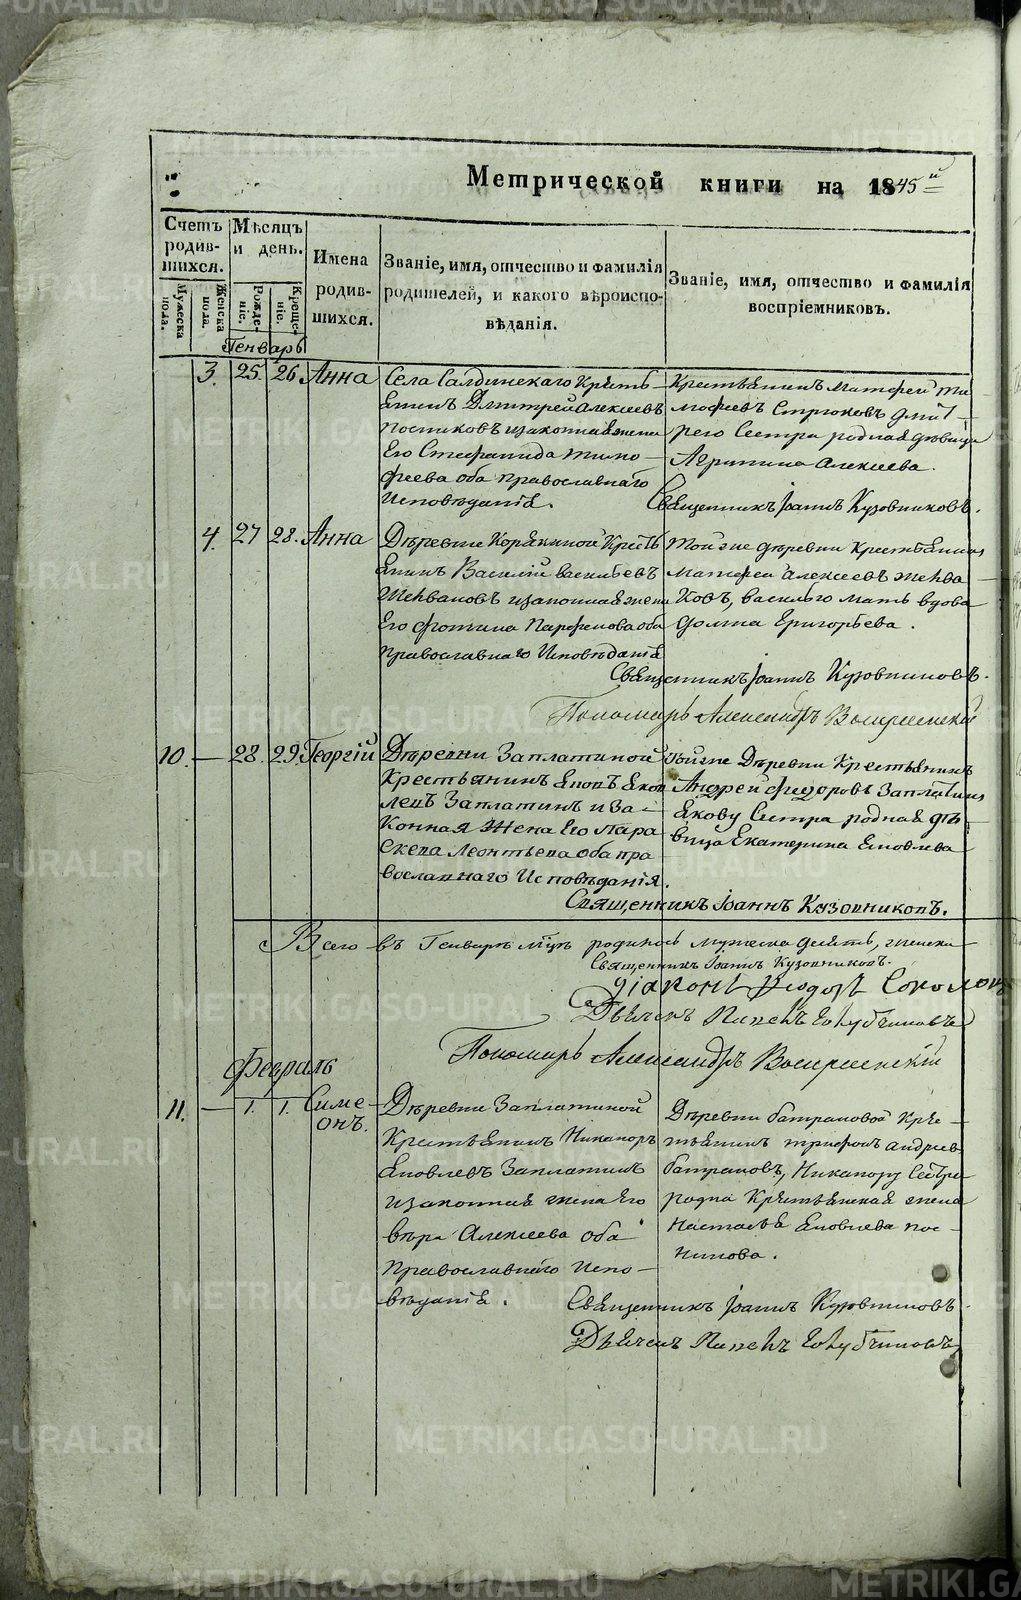 Метрической книги на 1845й
Счетъ родив-шихся.
Мужеска пола.
Женска пола.
Мѣсяцъ и день.
Рожде-ніе.
Креще-ніе.
Имена родив-шихся.
Званіе, имя, отчество и фамилія
родителей, и какого вѣроиспо-
вѣданія.
Званіе, имя, отчество и фамилія
воспріемниковъ.
Генварь
3. 25. 26 Анна
Села Салдинскаго Кресть-
янинъ Дмитрей Алексеевъ
Постниковъ изаконная жена
Его Стефанида Тимо-
феева оба православнаго
Исповѣданія.
Крестьянинъ Матфей Ти-
мофеевъ Стрюковъ дмит-
рего Сестра родная дѣвица
Агрипина Алексеева.
Священникъ Іоаннъ Кузовниковъ.
4. 27 28. Анна
Дѣревни Корякиной Кресть
янинъ Василій васильевъ
изаконная жена
Его фотина Парфенова оба
Православнаго Исповѣданія
Тойже дѣревни Крестьянинъ
Матфей Алексеевъ
ковъ, василью мать вдова
Григорьева.
Священникъ Іоаннъ Кузовниковъ.
Пономарь Александръ Воскресенскій
10. — 28. 29. Георгій
Дѣревни Заплатиной
Крестьянинъ Яковъ Яков
левъ Заплатинъ и За-
конная Жена Его Пара
скева Леонтьева оба пра
вославнаго Исповѣданія.
Тойже Дѣревни Крестьянинъ
Андрей федоровъ Заплатинъ
Якову Сестра родная дѣ-
вица Екатерина Яковлева
Священникъ Іоаннъ Кузовниковъ.
Всего въ Генварѣ мцѣ родилось мужеска десять, женска
Священникъ Іоаннъ Кузовниковъ.
Діаконъ Феодоръ Соколовъ
Дьячекъ Павелъ Голубчиковъ
Пономарь Александръ Воскресенскій
Февраль
11. — 1. 1. Симе-
онъ.
Дѣревни Заплатиной
Крестьянинъ Никаноръ
Яковлевъ Заплатинъ
изаконная жена Его
вѣра Алексеева оба
Православнаго Испо-
вѣданія.
Дѣревни батраковой Кре-
стьянинъ трифонъ андреев
батраковъ, Никанору Сестра
родна Крестьянская жена
Настасья Яковлева пос-
никова.
Священникъ Іоаннъ Кузовниковъ.
Дьячекъ Павелъ Голубчиковъ
METRIKI.GASO-URAL.RU